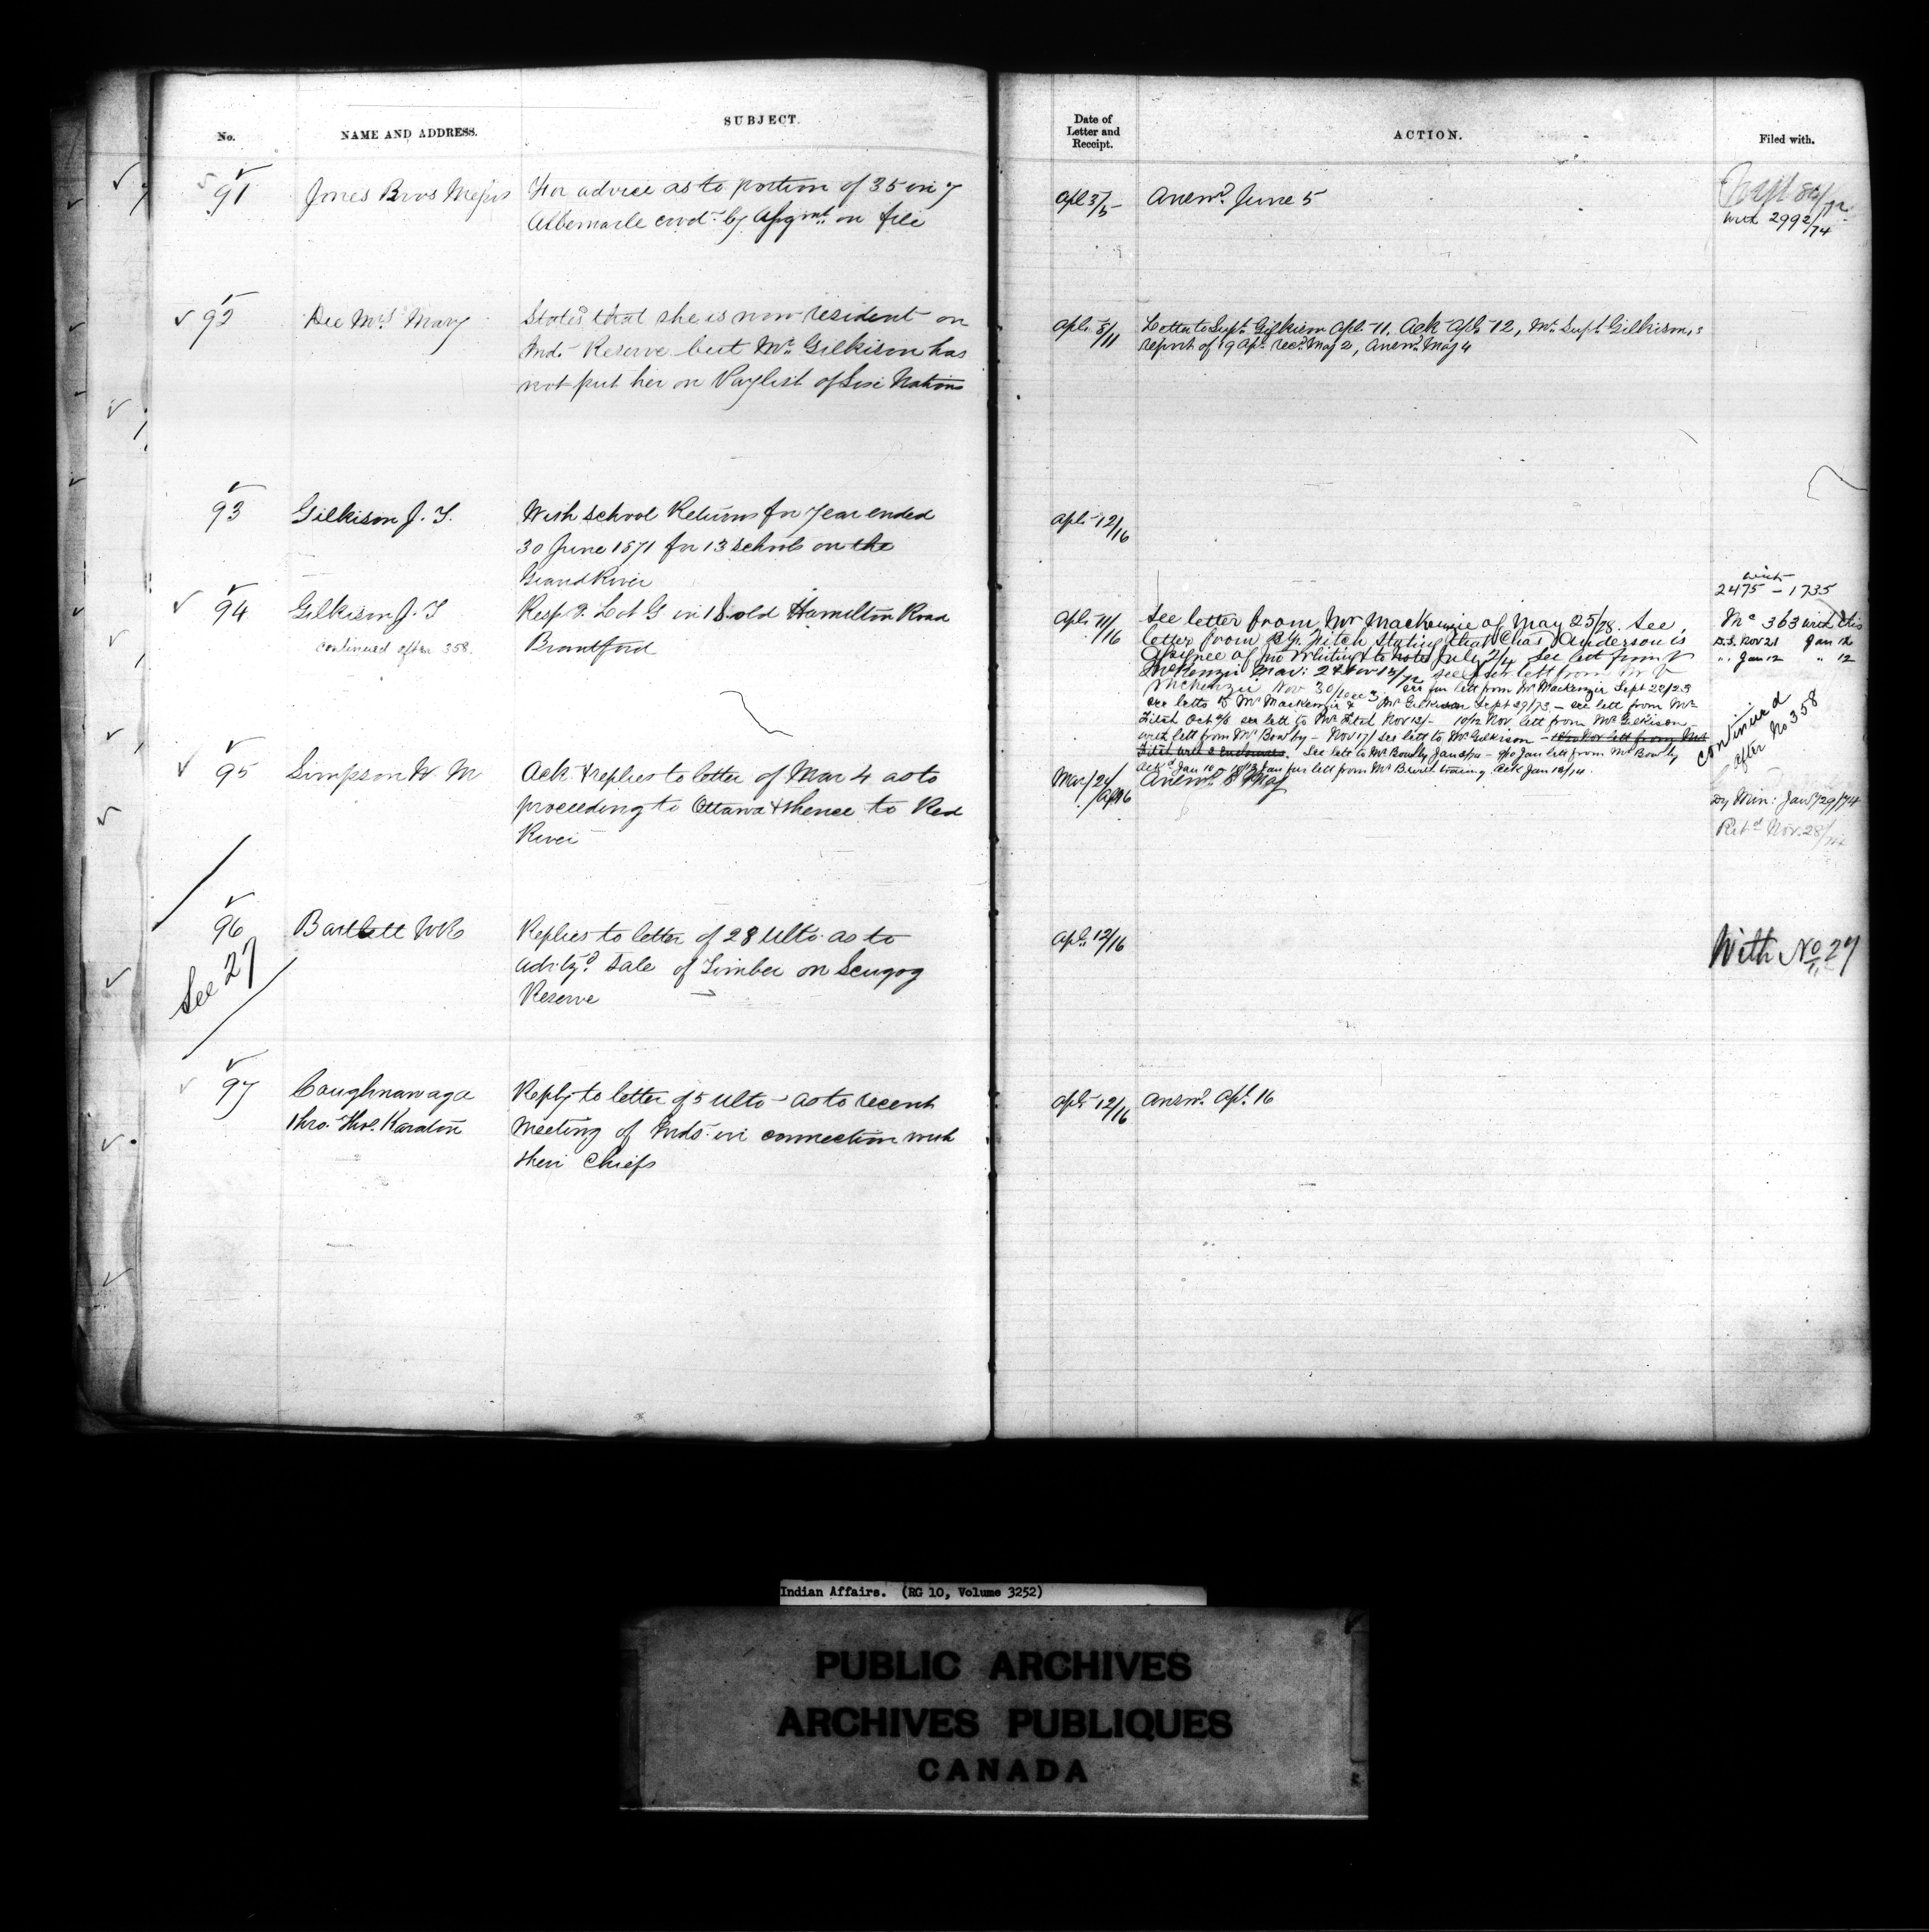 No.
NAME AND ADDRESS.
SUBJECT.
Date of
Letter and
Receipt.
ACTION.
Filed with.
91
Jones Bros Messrs
For advice as to portion of 35 in 7
Albemarle covd. by Assgmt. on file
Apl 3/5
Answd. June 5
with 2992/74
92
Dee Mrs. Mary
States that she is now resident on
Ind. Reserve but Mr. Gilkison has
not put her on Paylist of Six Nations
Apl. 8/11
Letter to Supt. Gilkison Apl. 11. Ack. Apl. 12, Mr. Supt. Gilkison's
report of 19 Apl. recd. May 2, Answd. May 4
93
Gilkison J. T.
With School Returns for year ended
30 June 1871 for 13 schools on the
Grand River
Apl. 12/16
94
Gilkison J. T
continued after 358.
Resp. g. Lot G in 18 old Hamilton Road
Brantford
Apl. 11/16
See letter from Mr MacKenzie of May 25/28. See
letter from Fitch stating that Chas Anderson is
Assignee of Jno Whiting July 2/4 See lett from
McKenzie Nov 30/Dec 3 see fur lett from Mr MacKenzie Sept 22/23
see letts to Mr MacKenzie & Mr Gilkison Sept 29/73 – see lett from Mr
Fitch Oct see lett to Mr Fitch Nov 12/– 10/12 Nov lett from Mr Gilkison
with lett from Mr Bowlby – Nov 17/ see lett to Mr Gilkison –
See lett to Mr Bowlby Jan – Jan lett from Mr Bowlby
with
2475 – 1735
No 363 with this
D.S. Nov 21 Jan 12
" Jan 12 " 12
continued
after No 358
95
Simpson W. M
Ack. & replies to letter of Mar 4 as to
proceeding to Ottawa & thence to Red
River
Mar/24/Ap16
Answd. 8 May
Dy Min: Jany/29/74
Retd Nov. 28/74
96
See 27
Bartlett WR
Replies to letter of 28 Ulto. as to
advtzd. sale of Timber on Scugog
Reserve
Apl. 12/16
With No. 27
97
Caughnawaga
thro. Thos. Karaton
Reply to letter of 5 Ulto – as to recent
meeting of Inds. in connection with
their Chiefs
Apl. 12/16
Answd. Apl. 16
Indian Affairs. (RG 10, Volume 3252)
PUBLIC ARCHIVES
ARCHIVES PUBLIQUES
CANADA